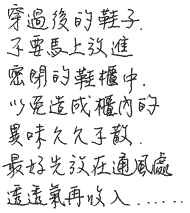 穿過後的鞋子.
不要馬上放進
密閉的鞋櫃中.
以免造成櫃內的
異味久久不散.
最好先放在通風處
透透氣再收入......